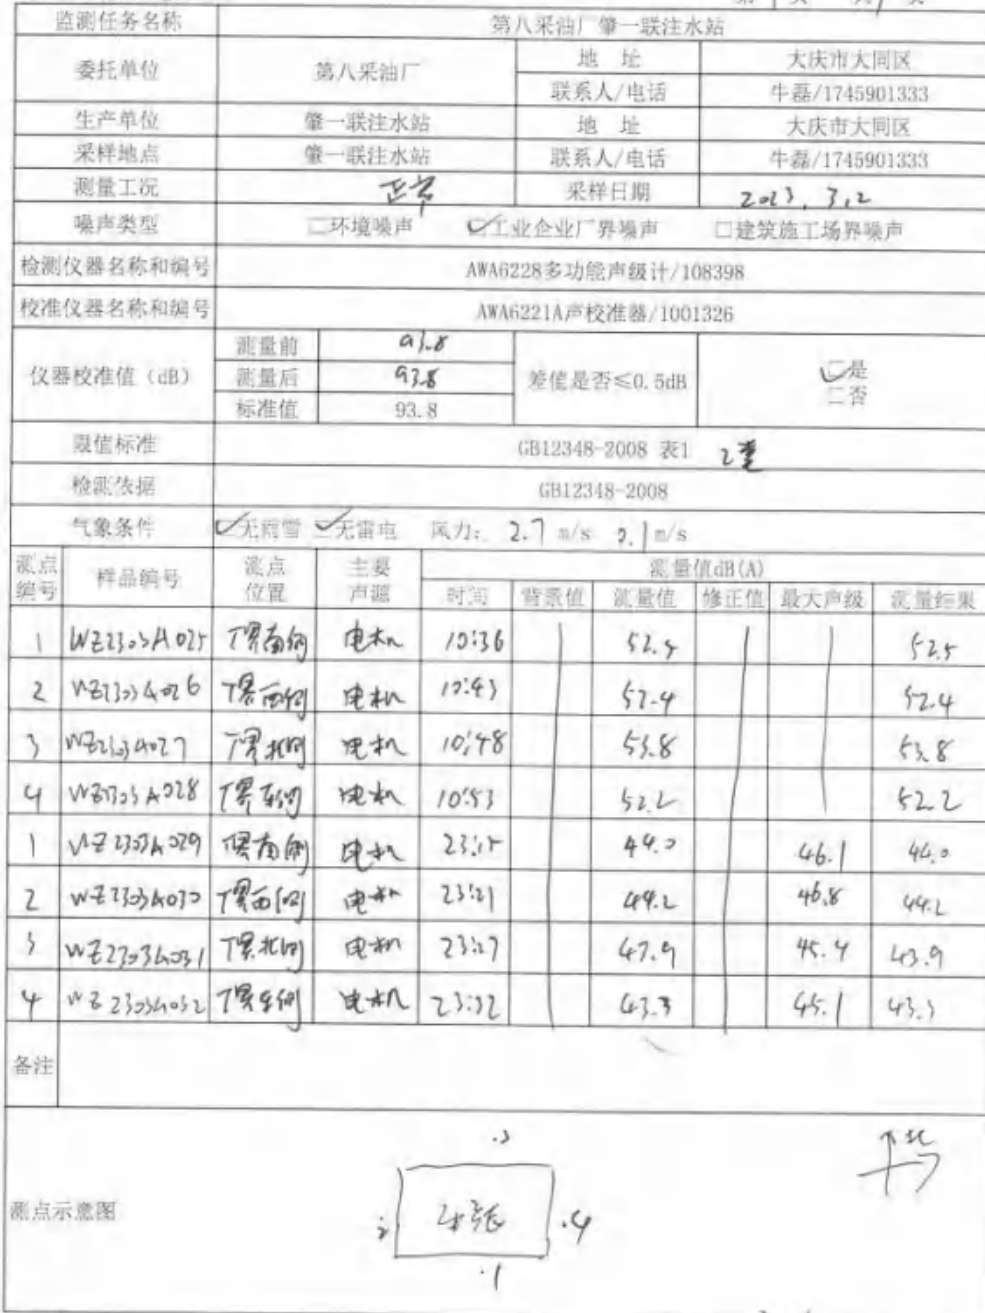 监测任务名称 第八采油厂肇一联注水站
委托单位 第八采油厂 地 址 大庆市大同区
联系人/电话 牛磊/1745901333
生产单位 肇一联注水站 地 址 大庆市大同区
采样地点 肇一联注水站 联系人/电话 牛磊/1745901333
测量工况 正常 采样日期 2023.3.2
噪声类型 □环境噪声 ☑工业企业厂界噪声 □建筑施工场界噪声
检测仪器名称和编号 AWA6228多功能声级计/108398
校准仪器名称和编号 AWA6221A声校准器/1001326
仪器校准值（dB） 测量前 93.8 差值是否≤0.5dB ☑是
测量后 93.8 □否
标准值 93.8
限值标准 GB12348-2008 表1 2类
检测依据 GB12348-2008
气象条件 ☑无雨雪 ☑无雷电 风力: 2.7 m/s 2.1 m/s
测点编号 样品编号 测点位置 主要声源 测量值dB(A)
时间 背景值 测量值 修正值 最大声级 测量结果
1 WZ2303A025 厂界南侧 电机 10:36 52.5 52.5
2 WZ2303A026 厂界西侧 电机 10:43 52.4 52.4
3 WZ2303A027 厂界北侧 电机 10:48 53.8 53.8
4 WZ2303A028 厂界东侧 电机 10:53 52.2 52.2
1 WZ2303A029 厂界南侧 电机 23:15 44.0 46.1 44.0
2 WZ2303A030 厂界西侧 电机 23:21 44.2 46.8 44.2
3 WZ2303A031 厂界北侧 电机 23:27 43.9 45.4 43.9
4 WZ2303A032 厂界东侧 电机 23:32 43.3 45.1 43.3
备注
北
.3
测点示意图 2. .4
.1